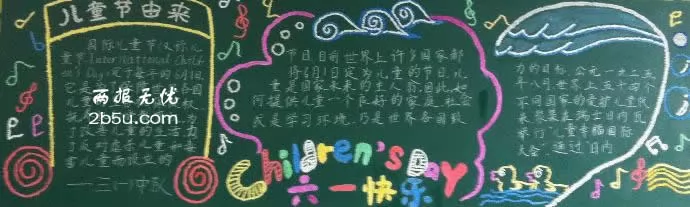 儿童节由来
国际儿童节(又称儿
童节,International Child
ren's Day)定于每年的6月1日
两报无忧
2b5u.com
了改善儿童的生活
了反对虐杀儿童和毒
害儿童而设立的
节日,目前世界上许多国家都
将6月1日定为儿童的节日,儿
童是国家未来的主人翁,因此,如
何提供儿童一个良好的家庭、社会
或是学习环境,乃是世界各国致
力的目标。公元一九二五
年八月世界上五十四个
不同国家的爱护儿童代
表,聚集在瑞士日内瓦
举行"儿童幸福国际
大会",通过"日内
Children's Day
六一快乐